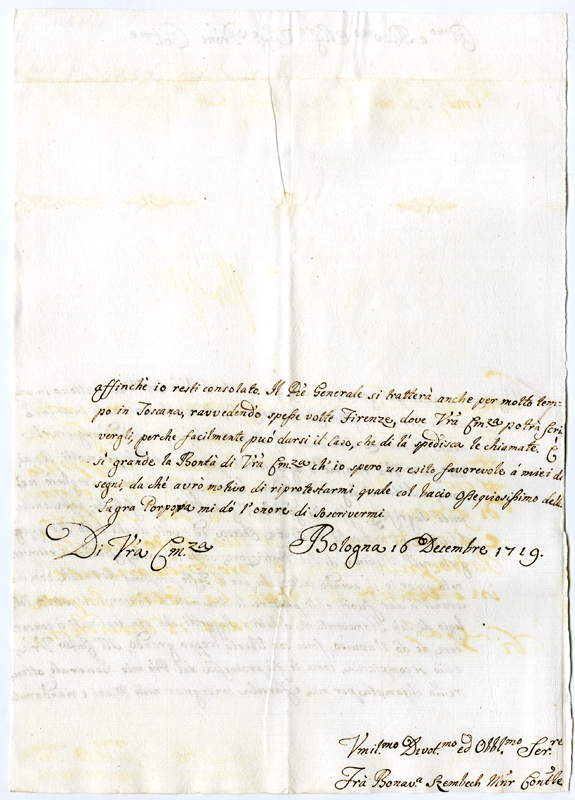 affinchè io resti consolato. Il Pře Generale si tratterà anche per molto tem-
po in Toscana, ravvedendo speße volte Firenze, dove Vrã Emza potrà scri
vergli, perche facilmente può darsi il caso, che di là spedisca le chiamate. È
si grande la Bontà di Vrã Emza ch' io spero un esito favorevole à miei di
segni, da chè avrò motivo di riprotestarmi quale col bacio oßequiosißimo della
Sagra Porpora mi dò l'onore di soscrivermi
Di Vrã Em.za Bologna 16 Decembre 1719.
Vmil.mo Divot.mo ed Obbl.mo Ser.re
Frà Bonav.a Szembech Min.r Con.tle